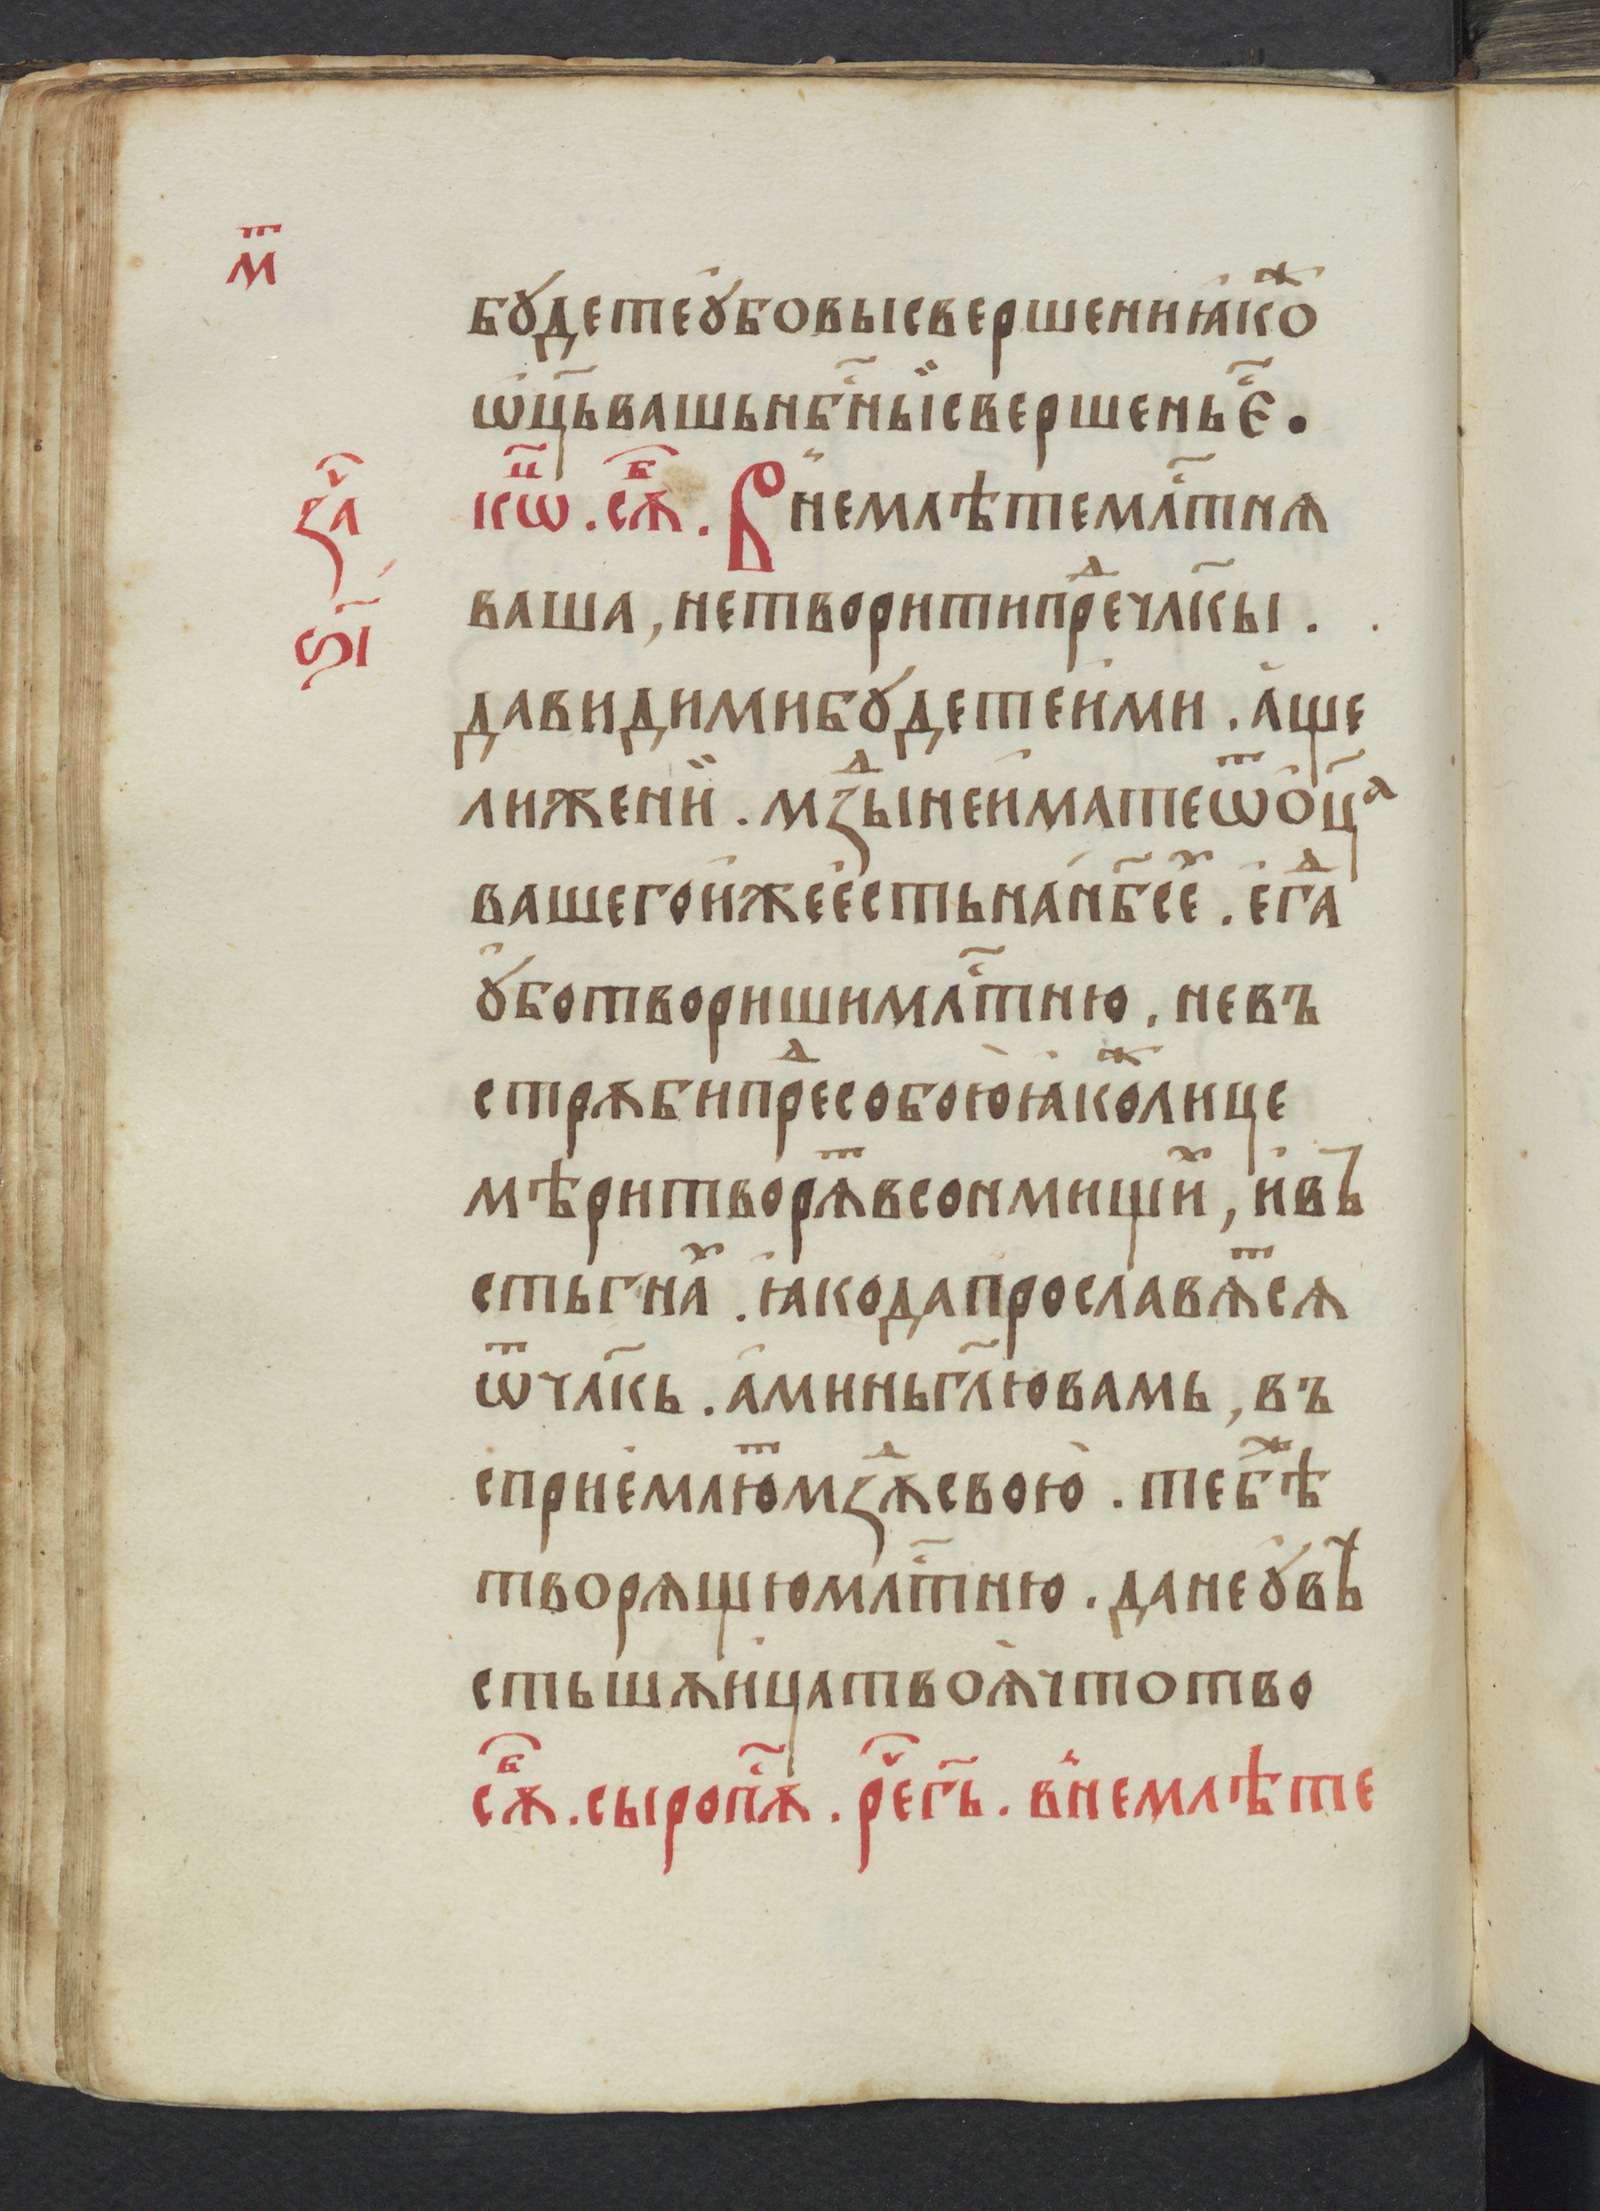 м҃ⷮ
бꙋдетеꙋ҆бовысвершениꙗ҆кѡⷤ
ѡ҆ц҃ьвашьнб҃ⷭныйсвершеньє҃ⷭ.
кѡⷰ҇.сѫⷠ҇.Внемлѣтемлⷭ҇тнѧ
заⷱ҇
ваша,нетворитипреⷣчлк҃ы.
ѕ҃і
давидимибꙋдетеи҆ми.а҆ще
лижени.мзⷣынеи҆матеѿо҆ц҃ᲂа
вашегои҆жеє҆стьнан҃бсеⷯ.є҆гⷣа
ꙋ҆ботворишимлⷭ҇тню.невъ
стрѫбипреⷣсобоюꙗ҆коⷤлице
мѣритворѧⷮвсонмищиⷯ,и҆въ
стьгнаⷯ.ꙗ҆кодапрославѧⷮсѧ
ѿчл҃къ.а҆миньгл҃ювамь,въ
сприемлюⷮмзⷣѫсвою.тебѣⷤ
творѧщюмлⷭ҇тню.данеꙋ҆вѣⷭ
стьшѫи҆цатвоѧчтотво
сѫⷠ҇.сыропⷭ҇ѫ.реⷱ҇гь҃.внемлѣте